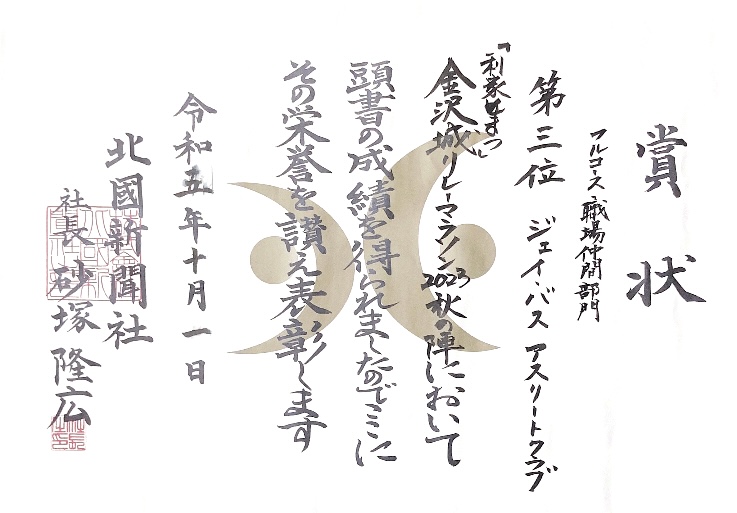 賞状
フルコース 職場仲間部門
第三位 ジェイ・バス アスリートクラブ
「利家とまつ」
金沢城リレーマラソン2023秋の陣において
頭書の成績を得られましたのでここに
その栄誉を讃え表彰します
令和五年十月一日
北國新聞社
社長 砂塚隆広